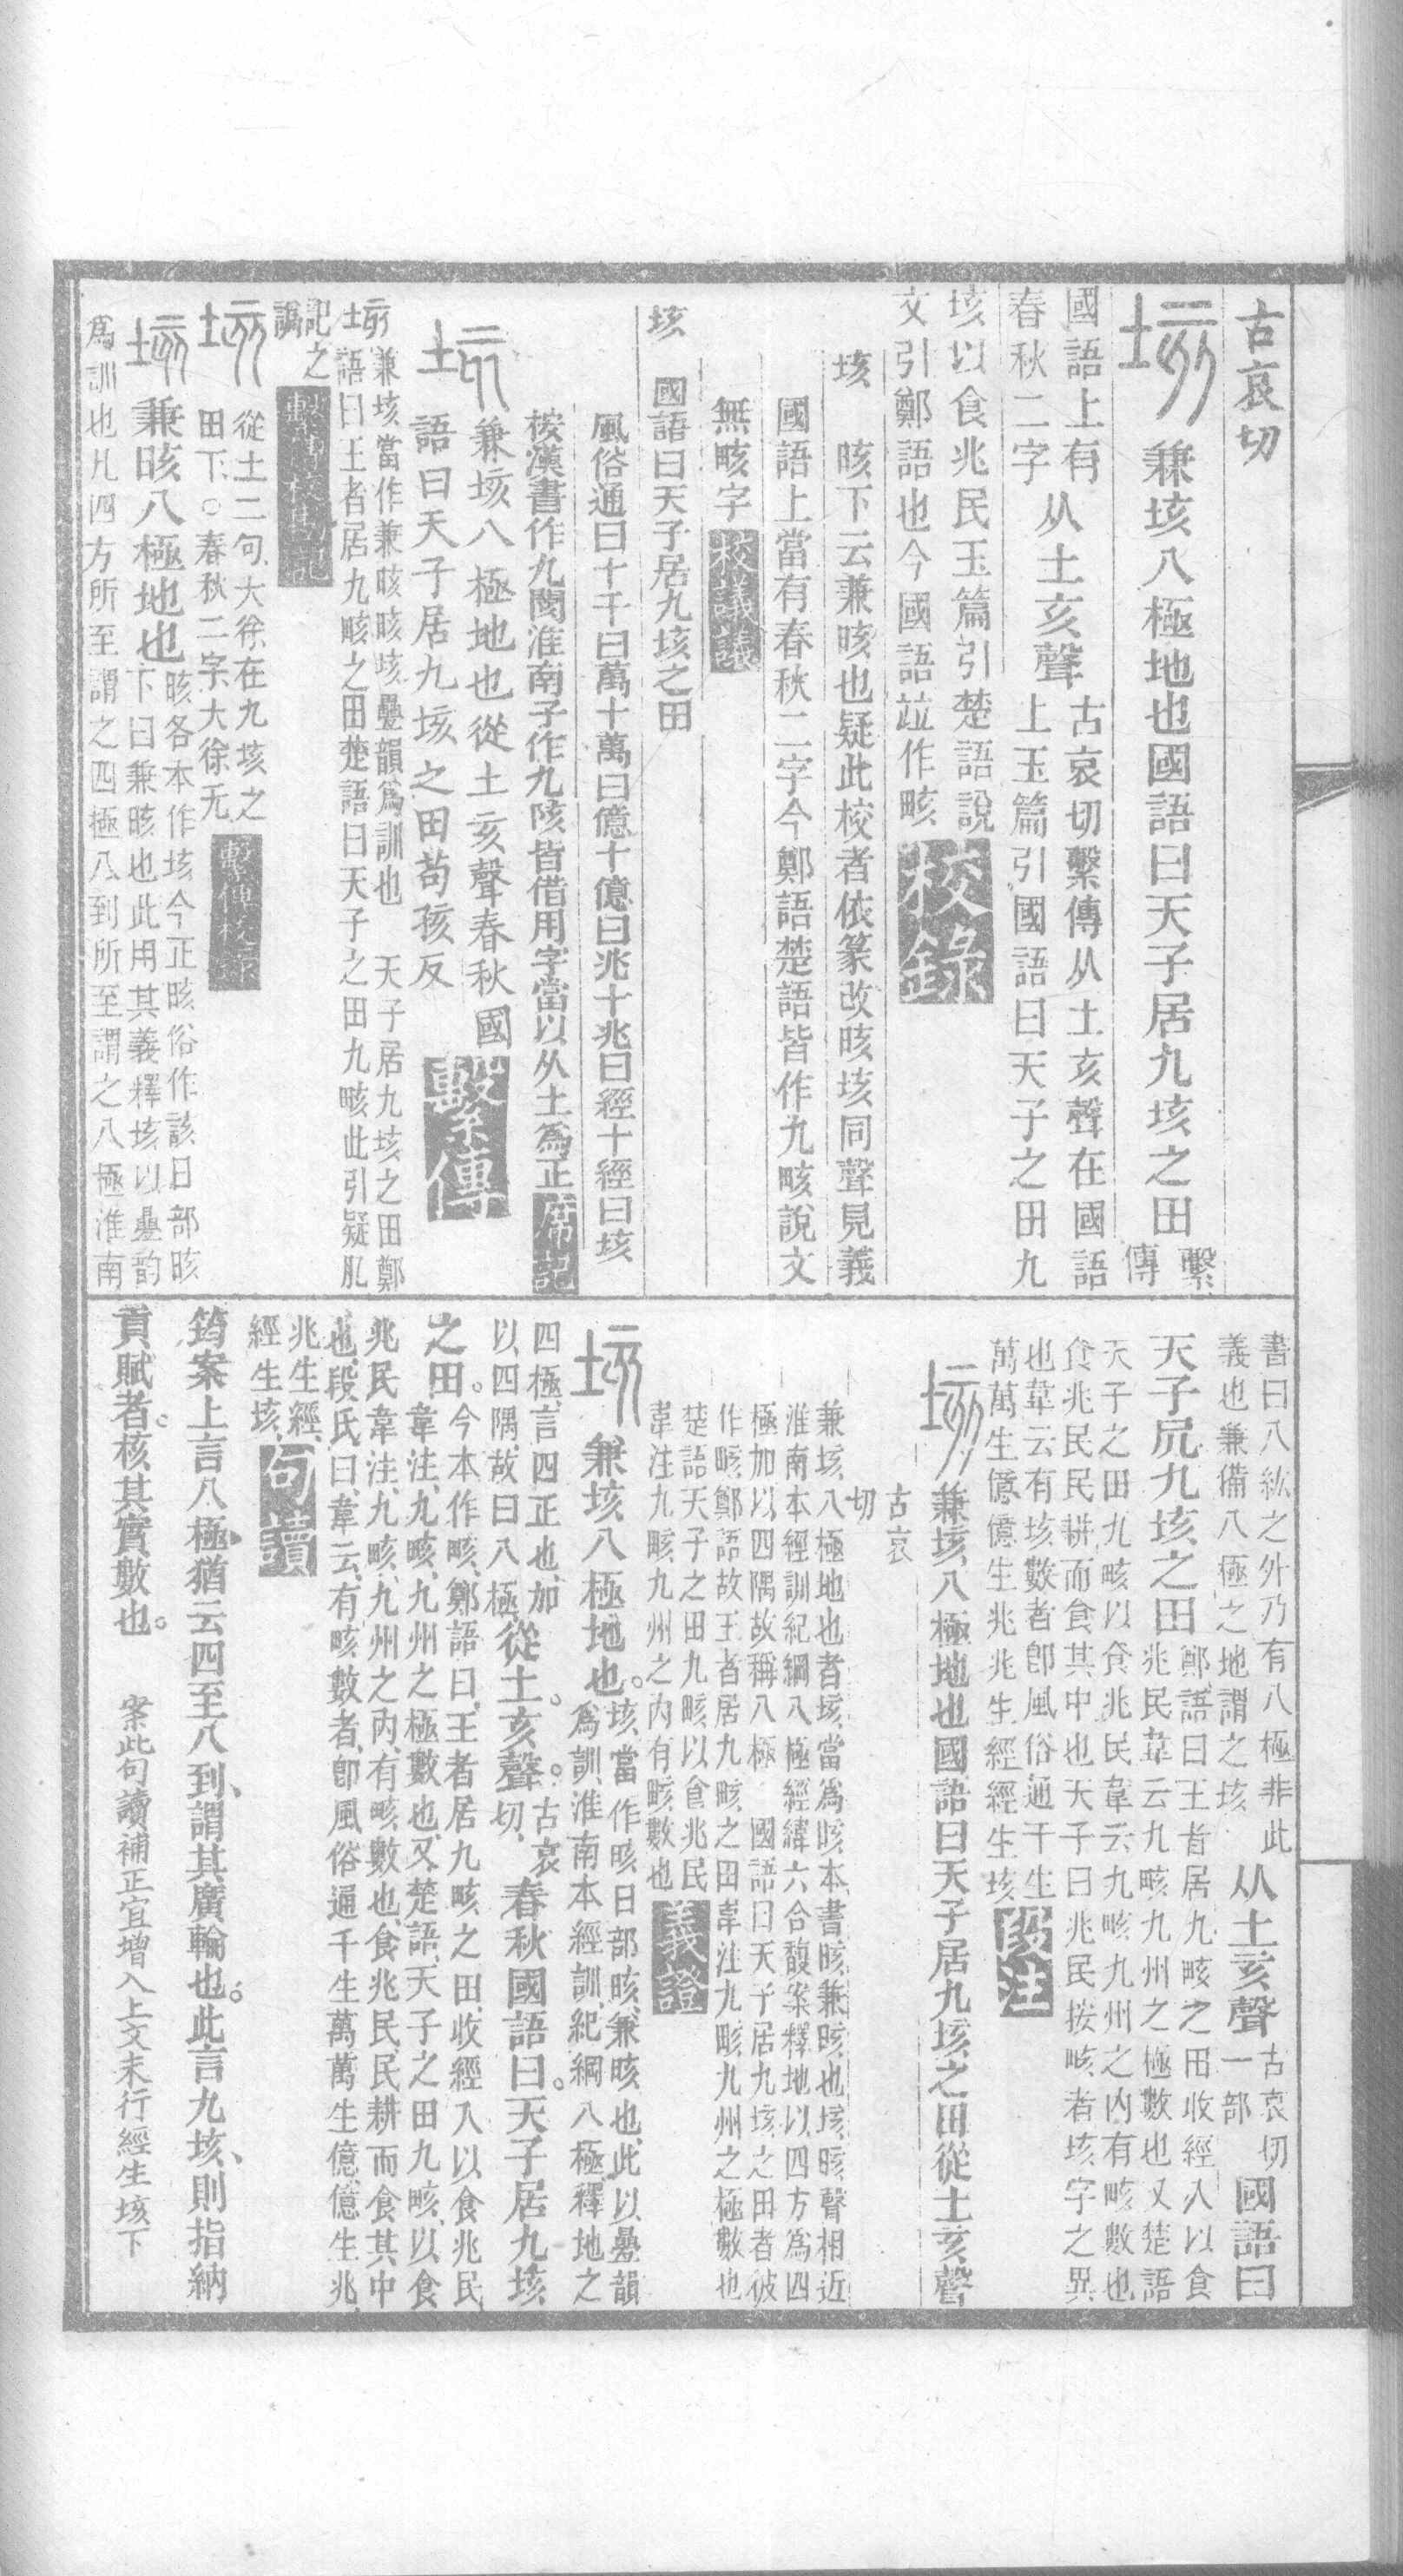 古哀切
垓兼垓八極地也國語曰天子居九垓之田繫
傳
國語上有
春秋二字
从土亥聲
古哀切繫傳从土亥聲在國語
上玉篇引國語曰天子之田九
垓以食兆民玉篇引楚語說
文引鄭語也今國語竝作畡
校錄
垓　晐下云兼晐也疑此校者依篆改晐垓同聲見義
國語上當有春秋二字今鄭語楚語皆作九畡說文
無畡字
校議議
垓　國語曰天子居九垓之田
風俗通曰十千曰萬十萬曰億十億曰兆十兆曰經十經曰垓
桉漢書作九閡淮南子作九陔皆借用字當以从土爲正
席記
垓兼垓八極地也從土亥聲春秋國
語曰天子居九垓之田苟孩反
繫傳
垓兼垓當作兼晐晐垓疊韻爲訓也　天子居九垓之田鄭
語曰王者居九畡之田楚語曰天子之田九畡此引疑肊
記之
譌
垓從土二句大徐在九垓之
田下○春秋二字大徐无
繫傳校錄
垓兼晐八極地也
晐各本作垓今正晐俗作該日部晐
下曰兼晐也此用其義釋垓以疊韵
爲訓也凡四方所至謂之四極八到所至謂之八極淮南
書曰八紘之外乃有八極非此
義也兼備八極之地謂之垓
从土亥聲
古哀切
一部
國語曰
天子凥九垓之田
鄭語曰王者居九畡之田收經入以食
兆民韋云九畡九州之極數也又楚語
天子之田九畡以食兆民韋云九畡九州之內有畡數也
食兆民民耕而食其中也天子曰兆民按畡者垓字之異
也韋云有垓數者卽風俗通千生
萬萬生億億生兆兆生經經生垓
段注
垓兼垓八極地也國語曰天子居九垓之田從土亥聲
古哀
切
兼垓八極地也者垓當爲晐本書晐兼晐也垓晐聲相近
淮南本經訓紀綱八極經緯六合馥案釋地以四方爲四
極加以四隅故稱八極　國語曰天子居九垓之田者彼
作畡鄭語故王者居九畡之田韋注九畡九州之極數也
楚語天子之田九畡以食兆民
韋注九畡九州之內有畡數也
義證
垓兼垓八極地也。
垓當作晐日部晐兼晐也此以疊韻
爲訓淮南本經訓紀綱八極釋地之
四極言四正也加
以四隅故曰八極
從土。亥聲。
古哀
切
春秋國語曰。天子居九垓
之田。
今本作畡鄭語曰王者居九畡之田收經入以食兆民
韋注九畡九州之極數也又楚語天子之田九畡以食
兆民韋注九畡九州之內有畡數也食兆民民耕而食其中
也段氏曰韋云有畡數者卽風俗通千生萬萬生億億生兆
兆生經
經生垓
句讀
筠案上言八極猶云四至八到謂其廣輪也。此言九垓則指納
貢賦者。核其實數也。　案此句讀補正宜增入上文末行經生垓下